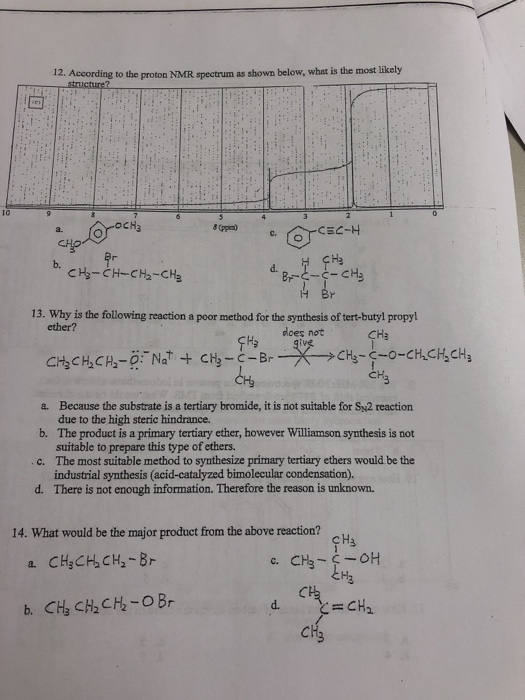 12. According to the proton NMR spectrum as shown below, what is the most likely
structure?
10 9 8 7 6 5 4 3 2 1 0
δ (ppm)
a. CHO OCH3
c. C≡C-H
b. CH3-CH-CH2-CH3
Br
d. H CH3
Br-C-C-CH3
H Br
13. Why is the following reaction a poor method for the synthesis of tert-butyl propyl
ether?
does not
give
CH3 CH3
CH3CH2CH2-Ö:⁻ Na⁺ + CH3-C-Br → CH3-C-O-CH2CH2CH3
CH3 CH3
a. Because the substrate is a tertiary bromide, it is not suitable for SN2 reaction
due to the high steric hindrance.
b. The product is a primary tertiary ether, however Williamson synthesis is not
suitable to prepare this type of ethers.
c. The most suitable method to synthesize primary tertiary ethers would be the
industrial synthesis (acid-catalyzed bimolecular condensation).
d. There is not enough information. Therefore the reason is unknown.
14. What would be the major product from the above reaction?
a. CH3CH2CH2-Br
c. CH3
CH3-C-OH
CH3
b. CH3CH2CH2-OBr
d. CH3
C=CH2
CH3